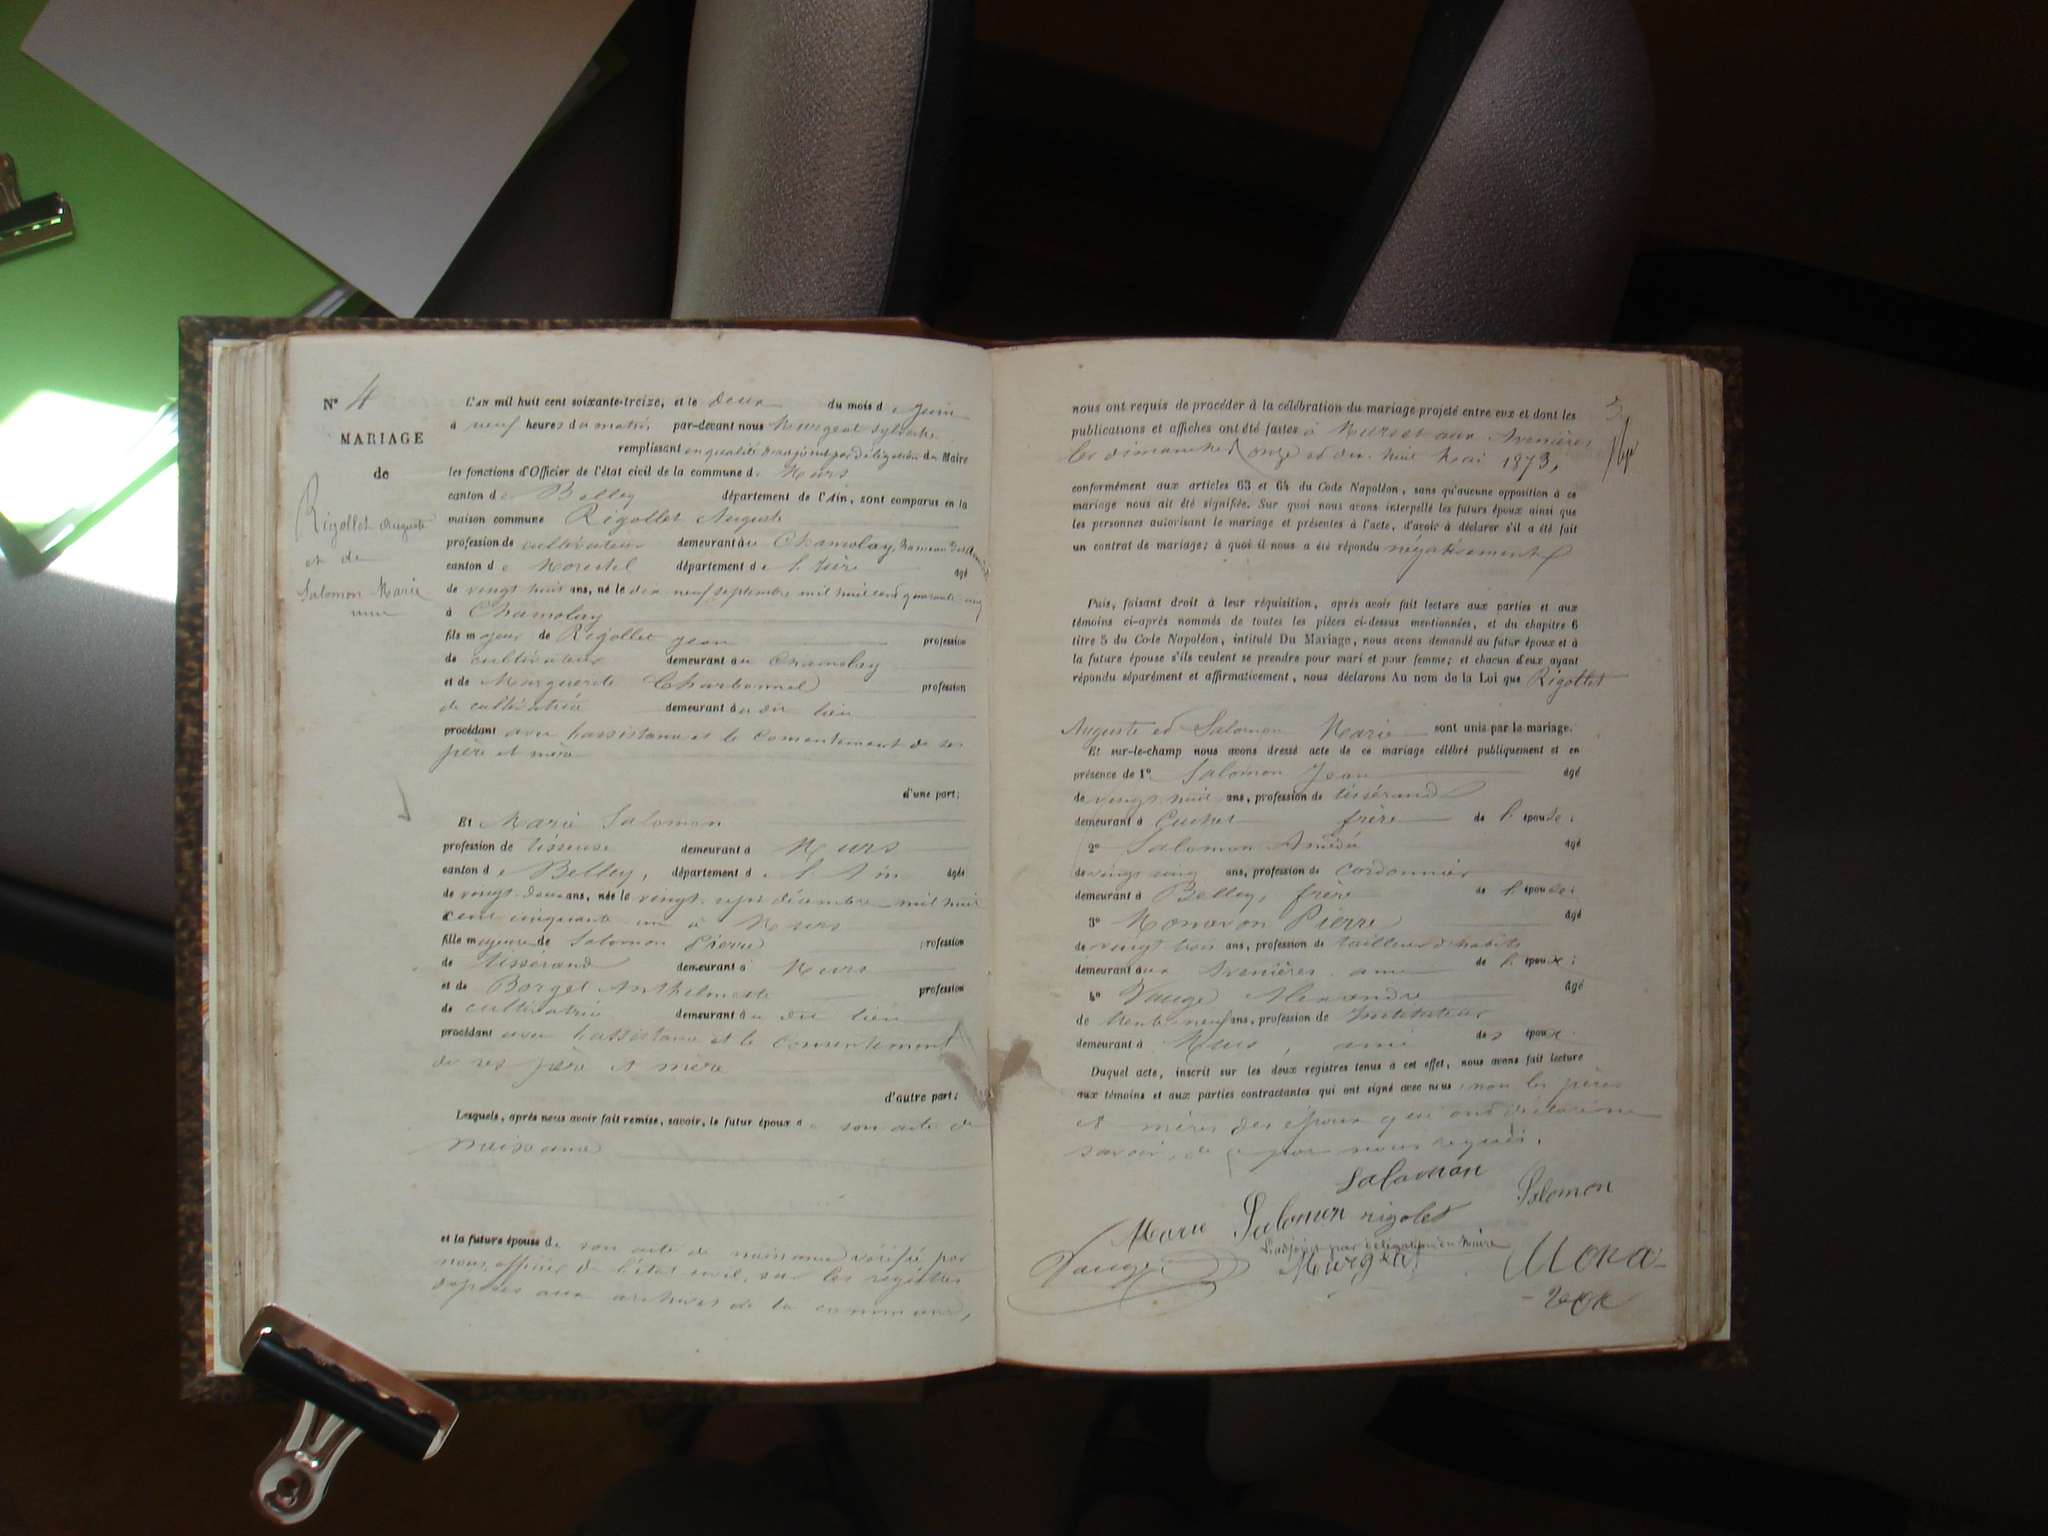 N° 4
MARIAGE
de
Rigollet Auguste
et de
Salomon Marie
L'an mil huit cent soixante-treize, et le deux du mois de Juin
à neuf heures du matin, par-devant nous Murgeat Sylvestre
remplissant en qualité d'adjoint par délégation du Maire
les fonctions d'Officier de l'état civil de la commune de Murs
canton de Belley département de l'Ain, sont comparus en la
maison commune Rigollet Auguste
profession de cultivateur demeurant au Chamolay, hameau des
canton de Morestel département de l'Isère âgé
de vingt huit ans, né le dix neuf septembre mil huit cent quarante
à Chamolay
fils majeur de Rigollet Jean profession
de cultivateur demeurant au Chamolay
et de Marguerite Charbonnel profession
de cultivatrice demeurant au dit lieu
procédant avec l'assistance et le consentement de ses
père et mère
d'une part;
Et Marie Salomon
profession de tisseuse demeurant à Murs
canton de Belley, département de l'Ain âgée
de vingt-deux ans, née le vingt-sept décembre mil huit
cent cinquante-un à Murs
fille majeure de Salomon Pierre profession
de tisserand demeurant à Murs
et de Borget Anthelmette profession
de cultivatrice demeurant au dit lieu
procédant avec l'assistance et le consentement
de ses père et mère
d'autre part;
Lesquels, après nous avoir fait remise, savoir, le futur époux de son acte de
naissance
et la future épouse de son acte de naissance vérifié par
nous officier de l'état civil, sur les registres
déposés aux archives de la commune,
nous ont requis de procéder à la célébration du mariage projeté entre eux et dont les
publications et affiches ont été faites à Murs et aux Avenières
les dimanches onze et dix-huit Mai 1873,
conformément aux articles 63 et 64 du Code Napoléon, sans qu'aucune opposition à ce
mariage nous ait été signifiée. Sur quoi nous avons interpellé les futurs époux ainsi que
les personnes autorisant le mariage et présentes à l'acte, d'avoir à déclarer s'il a été fait
un contrat de mariage; à quoi il nous a été répondu négativement
Puis, faisant droit à leur réquisition, après avoir fait lecture aux parties et aux
témoins ci-après nommés de toutes les pièces ci-dessus mentionnées, et du chapitre 6
titre 5 du Code Napoléon, intitulé Du Mariage, nous avons demandé au futur époux et à
la future épouse s'ils veulent se prendre pour mari et pour femme; et chacun d'eux ayant
répondu séparément et affirmativement, nous déclarons Au nom de la Loi que Rigollet
Auguste et Salomon Marie sont unis par le mariage.
Et sur-le-champ nous avons dressé acte de ce mariage célébré publiquement et en
présence de 1° Salomon Jean âgé
de vingt huit ans, profession de tisserand
demeurant à Cuchet frère de l'épouse;
2° Salomon Amédé âgé
de vingt cinq ans, profession de cordonnier
demeurant à Belley, frère de l'épouse;
3° Monavon Pierre âgé
de vingt trois ans, profession de tailleur d'habits
demeurant aux Avenières ami de l'époux;
4° Vauge Alexandre âgé
de trente-neuf ans, profession de Instituteur
demeurant à Murs, ami des époux.
Duquel acte, inscrit sur les deux registres tenus à cet effet, nous avons fait lecture
aux témoins et aux parties contractantes qui ont signé avec nous, non les pères
et mères des époux qui ont déclaré ne
savoir, de ce par nous requis.
Salomon
Marie Salomon rigolet Salomon
L'adjoint par délégation du Maire
Vauge Murgeat Mona-
-von